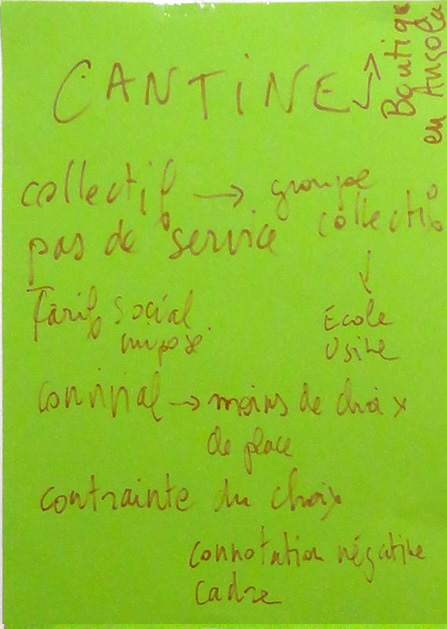 CANTINE → Boutique
en Angola
collectif → groupe
collectif
pas de service
↓
Tarif social
imposé
Ecole
Usine
convivial → moins de choix
de place
contrainte du choix
connotation négative
cadre